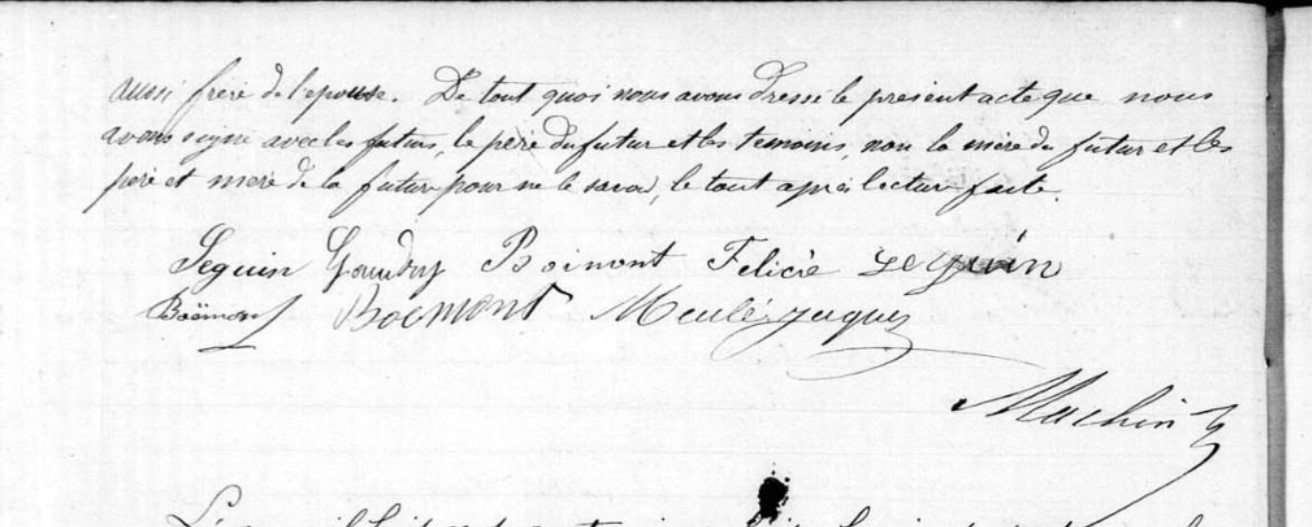 aussi frère de l'epouse. De tout quoi nous avons dressé le present acte que nous
avons signé avec les futurs, le père du futur et les temoins, non la mère du futur et les
père et mère de la future pour ne le savoir, le tout après lecture faite.
Seguin Gaudry Boinont Felicie seguin
Boëmont Boemont Meulé jaques
Machin